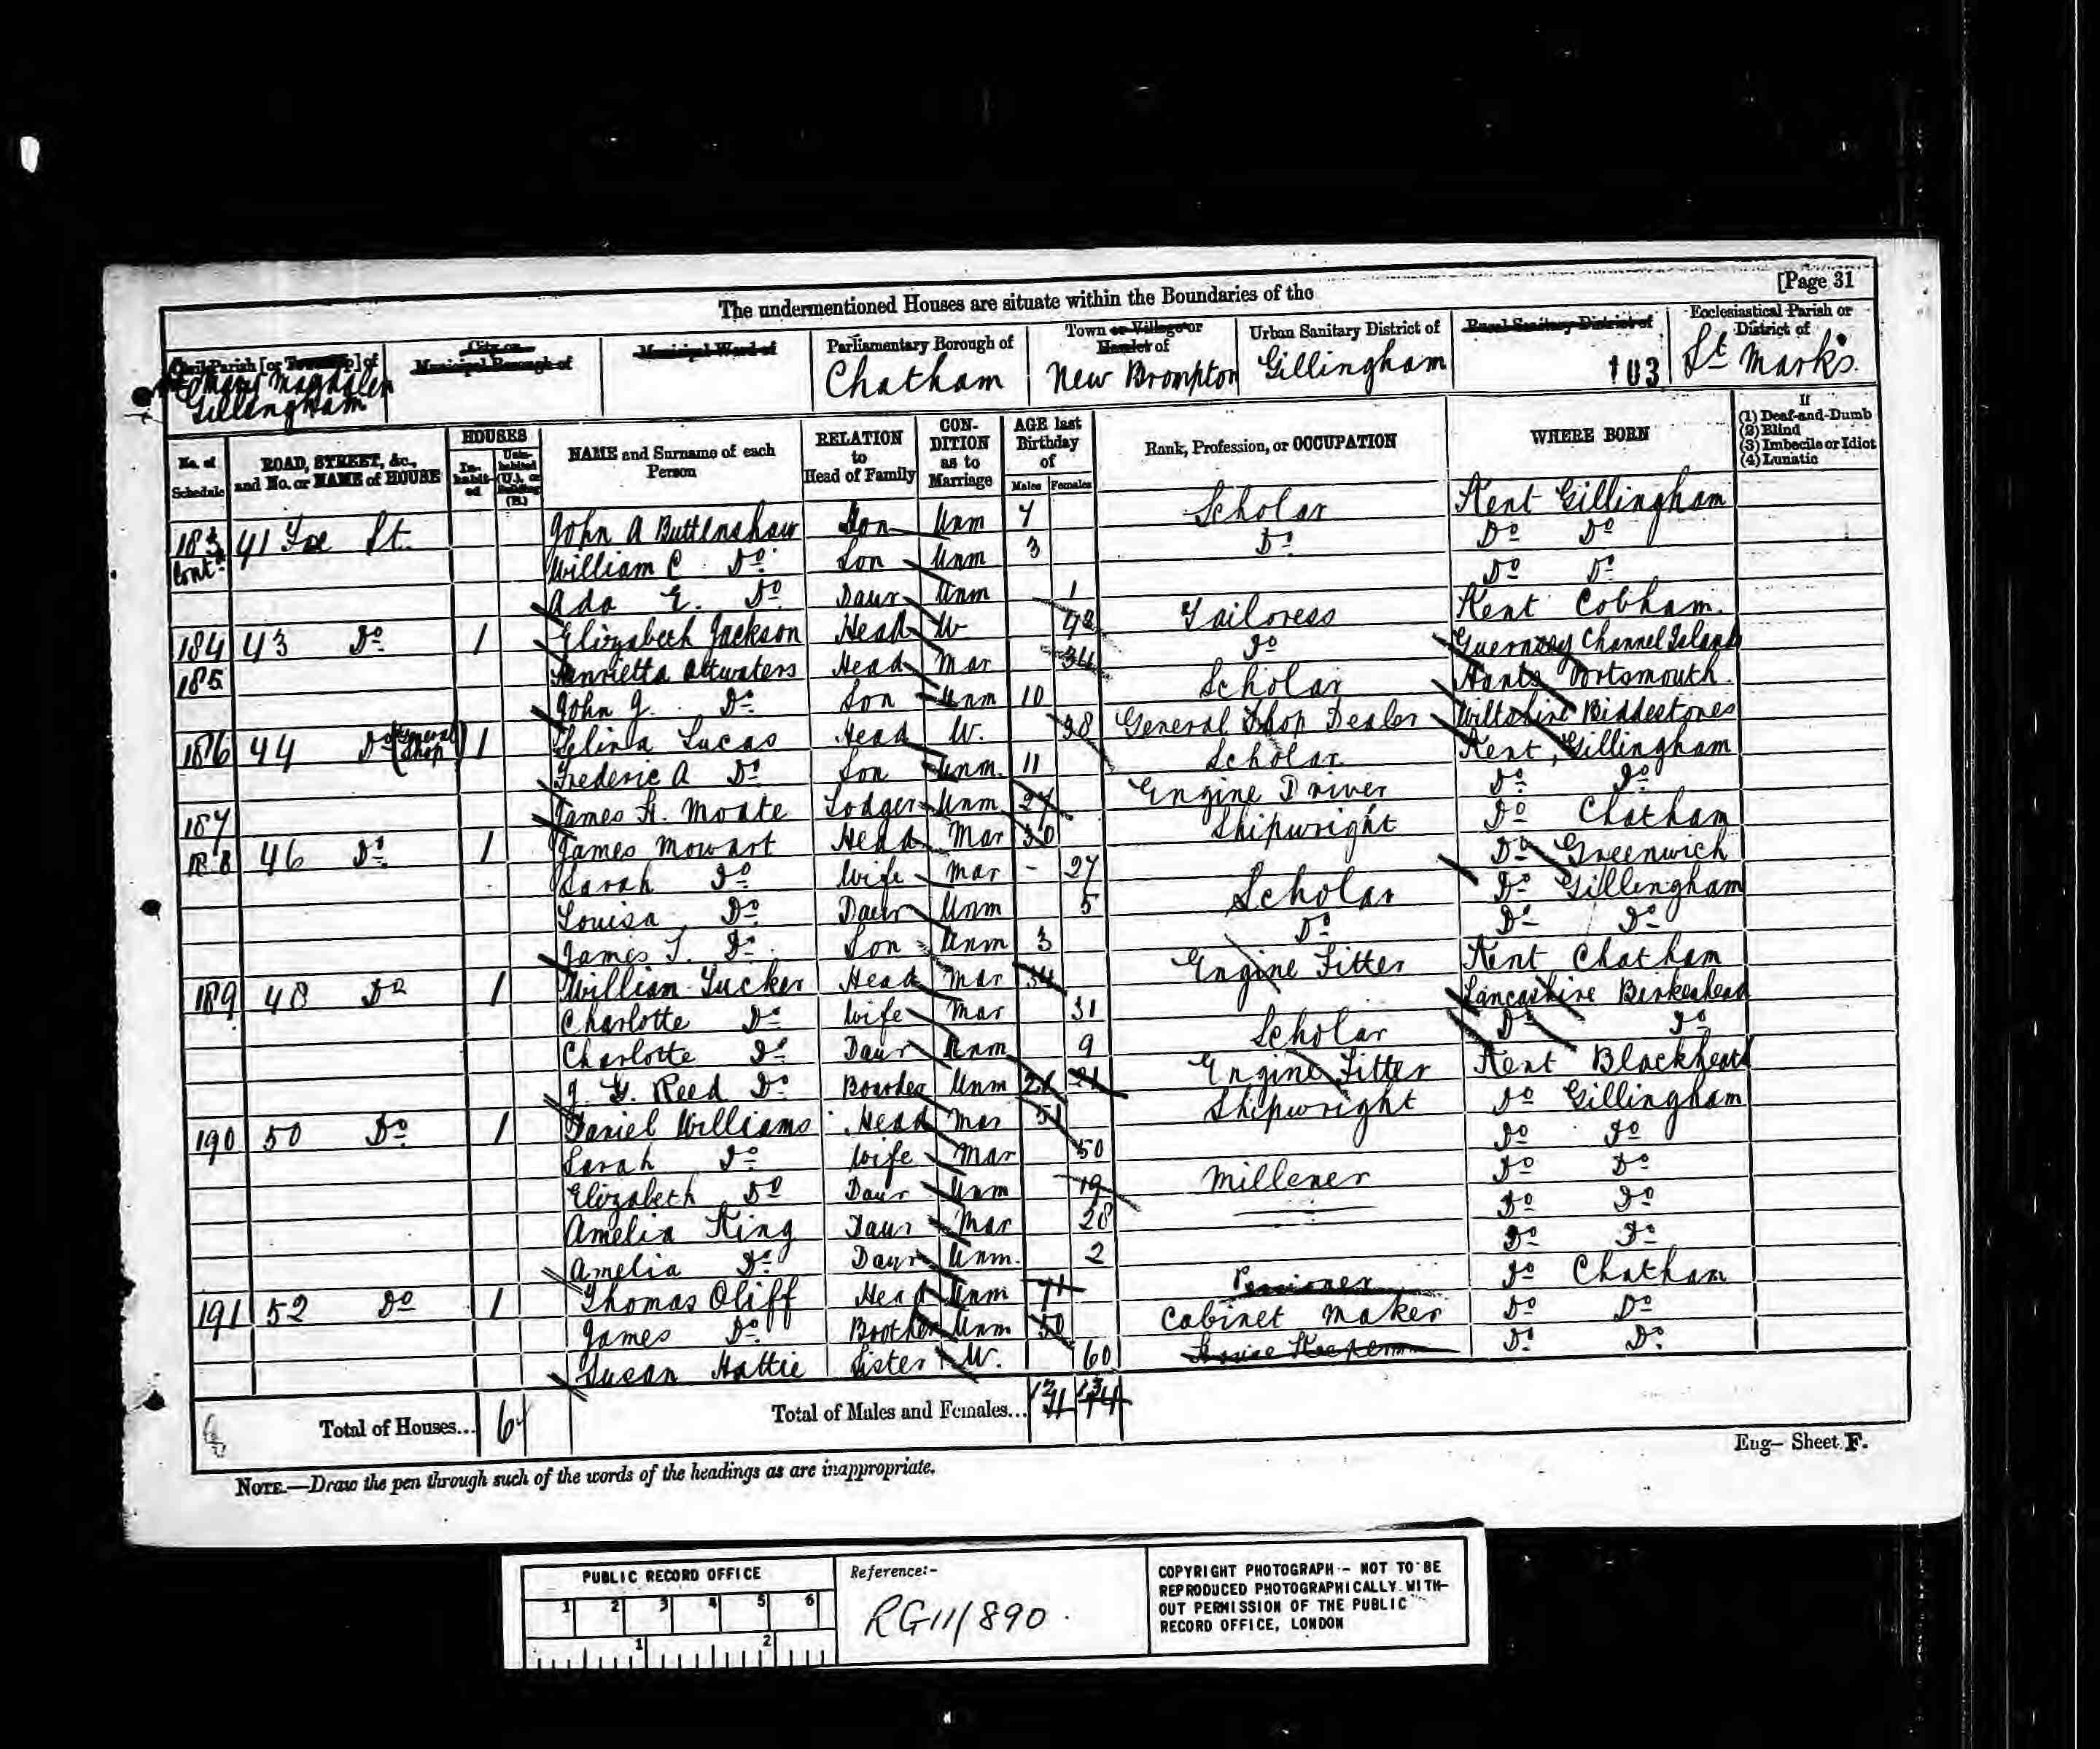 [Page 31
The undermentioned Houses are situate within the Boundaries of the
Civil Parish [or Township] of
City or Municipal Borough of
Municipal Ward of
Parliamentary Borough of
Town or Village or Hamlet of
Urban Sanitary District of
Rural Sanitary District of
Ecclesiastical Parish or District of
Mary Magdalen Gillingham
Chatham
New Brompton
Gillingham
103
St Mark's
No. of Schedule
ROAD, STREET, &c., and No. or NAME of HOUSE
HOUSES
In-habit-ed
Unin-habited (U.), or Building (B.)
NAME and Surname of each Person
RELATION to Head of Family
CON-DITION as to Marriage
AGE last Birthday of
Males Females
Rank, Profession, or OCCUPATION
WHERE BORN
If
(1) Deaf-and-Dumb
(2) Blind
(3) Imbecile or Idiot
(4) Lunatic
183 Cont. 41 St. John A Buttenshaw Son Unm 7 Scholar Kent Gillingham
William C Do Son Unm 3 Do Do Do
Ada E. Do Daur Unm 1 Do Do
184 43 Do 1 Elizabeth Jackson Head W Tailoress Kent Cobham
185 Henrietta Attwaters Head Mar 34 Do Guernsey Channel Island
John J. Do Son Unm 10 Scholar Hants Portsmouth
186 44 Do (General Shop) 1 Selina Lucas Head W. 38 General Shop Dealer Wiltshire Biddestones
Frederic A Do Son Unm 11 Scholar Kent, Gillingham
187 James H. Moate Lodger Unm 27 Engine Driver Do Do
188 46 Do 1 James Mowart Head Mar 30 Shipwright Do Chatham
Sarah Do Wife Mar - 27 Do Greenwich
Louisa Do Daur Unm 5 Scholar Do Gillingham
James T. Do Son Unm 3 Do Do Do
189 48 Do 1 William Tucker Head Mar 34 Engine Fitter Kent Chatham
Charlotte Do Wife Mar 31 Lancashire Birkenhead
Charlotte Do Daur Unm 9 Scholar Do Do
J. G. Reed Do Boarder Unm 21 21 Engine Fitter Kent Blackheath
190 50 Do 1 Daniel Williams Head Mar 51 Shipwright Do Gillingham
Sarah Do Wife Mar 50 Do Do
Elizabeth Do Daur Unm 19 Millener Do Do
Amelia King Daur Mar 28 Do Do
Amelia Do Daur Unm. 2 Do Do
191 52 Do 1 Thomas Oliff Head Unm 71 Pensioner Do Chatham
James Do Brother Unm 50 Cabinet Maker Do Do
Susan Hattie Sister W. 60 House Keeper Do Do
Total of Houses... 6
Total of Males and Females...
NOTE.—Draw the pen through such of the words of the headings as are inappropriate.
Eng— Sheet F.
PUBLIC RECORD OFFICE
1 2 3 4 5 6
1 2
Reference:-
RG11/890
COPYRIGHT PHOTOGRAPH - NOT TO BE
REPRODUCED PHOTOGRAPHICALLY WITH-
OUT PERMISSION OF THE PUBLIC
RECORD OFFICE, LONDON